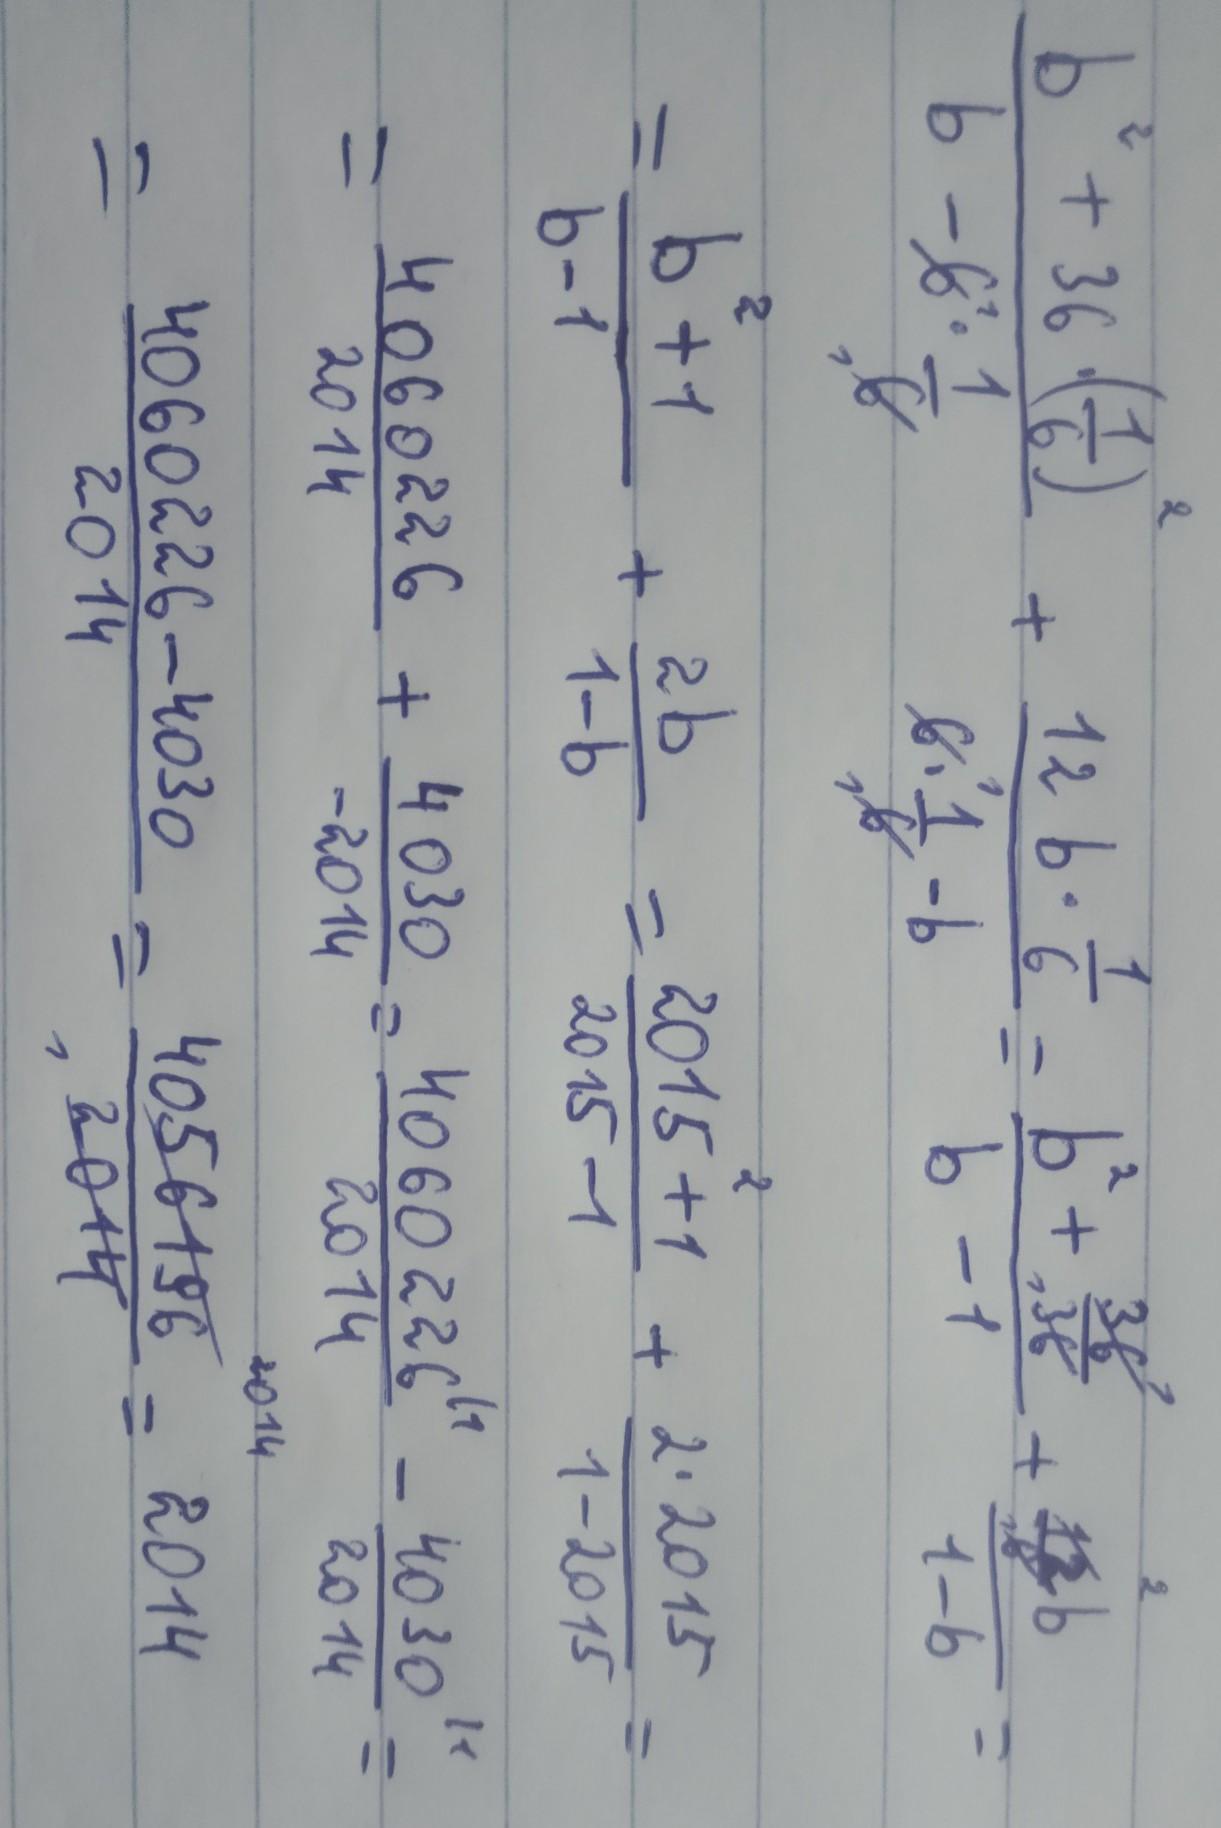 b² + 36·(1/6)² / b - 6·1/6 + 12b·1/6 / 6·1/6 - b = b² + 36/36 / b - 1 + 12b/6 / 1-b =
= b²+1 / b-1 + 2b / 1-b = 2015²+1 / 2015-1 + 2·2015 / 1-2015 =
= 4060226 / 2014 + 4030 / -2014 = 4060226 / 2014 - 4030 / 2014 =
= 4060226-4030 / 2014 = 4056196 / 2014 = 2014